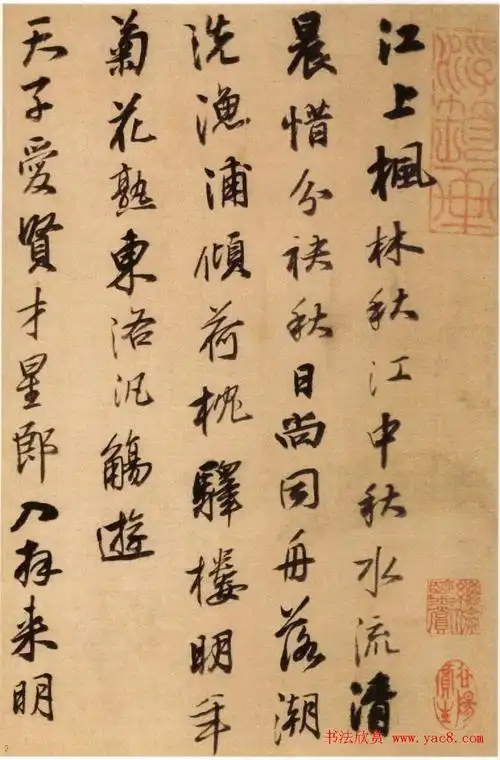 江上楓林秋江中秋水流清
晨惜分袂秋日尚同舟落潮
洗漁浦傾荷枕驛樓明年
菊花熟東洛汎觴遊
天子愛賢才星郎入拜來明
书法欣赏 www.yac8.com